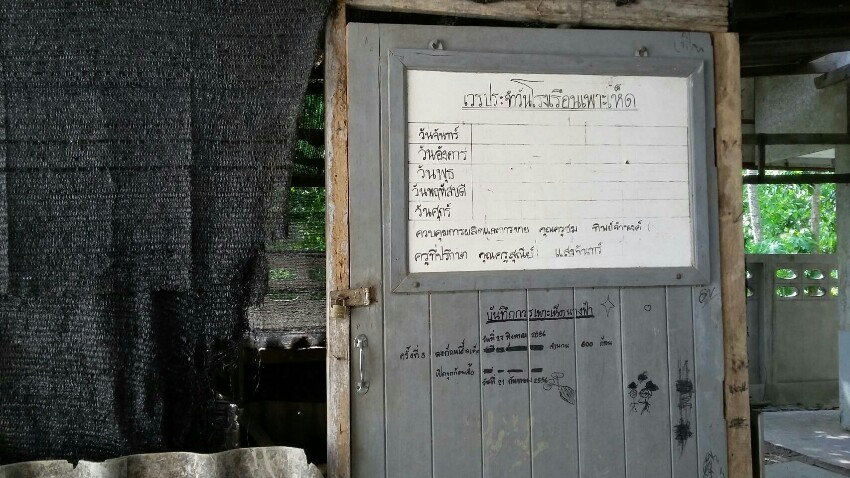 เวรประจำวันโรงเรือนเพาะเห็ด
วันจันทร์
วันอังคาร
วันพุธ
วันพฤหัสบดี
วันศุกร์
ควบคุมการผลิตและการขาย คุณครูชม ทิพย์จำนงค์
ครูที่ปรึกษา คุณครูสุณีย์ แสงจันทร์
บันทึกการเพาะเห็ดนางฟ้า
วันที่ 27 สิงหาคม 2556
ครั้งที่ 3 ลงก้อนเชื้อเห็ด จำนวน 500 ก้อน
เปิดจุกก้อนเชื้อ
วันที่ 21 กันยายน 2556